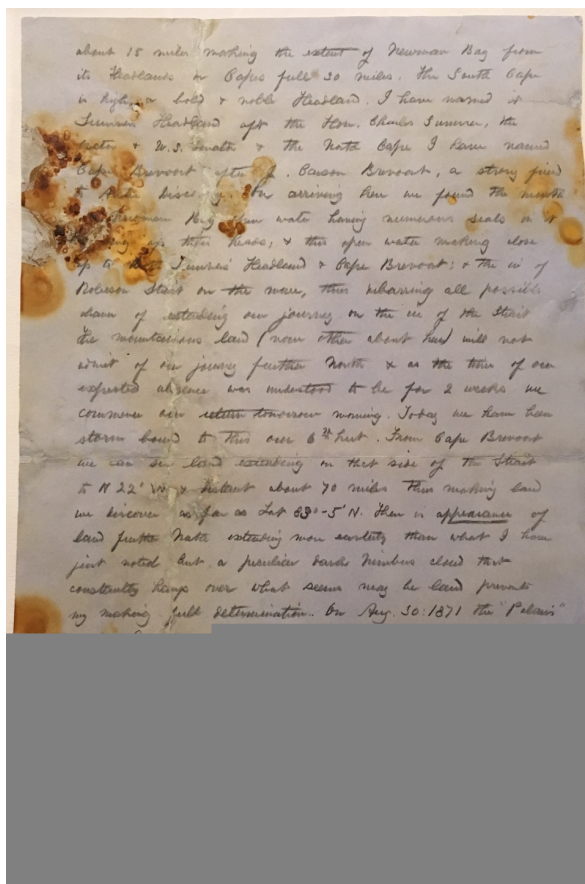 about 15 miles making the extent of Newman Bay from
its Headlands or Capes full 30 miles. The South Cape
is high, a bold & noble Headland. I have named it
Sumner Headland after the Hon. Charles Sumner, the
& U.S. Senator & the North Cape I have named
Cape Brevoort after J. Carson Brevoort, a strong friend
to Arctic Discovery. On arriving here we found the mouth
of Newman Bay open water having numerous seals in it
up their heads; & this open water making close
up to both Sumner Headland & Cape Brevoort; & the ice of
Robeson Strait on the move, thus debarring all possible
chance of extending our journey on the ice up the Strait
the mountainous land (none other about here) will not
admit of our journey further North & as the time of our
expected absence was understood to be for 2 weeks we
commence our return tomorrow morning. Today we have been
storm bound to this our 6th hut. From Cape Brevoort
we can see land extending on that side of the Strait
to N 22° W & distant about 70 miles thus making land
we discover as far as Lat 83°-5' N. There is appearance of
land further North extending more easterly than what I have
just noted but a peculiar dark Nimbus cloud that
constantly hangs over what seems may be land prevents
my making full determination. On Aug. 30: 1871 the "Polaris"